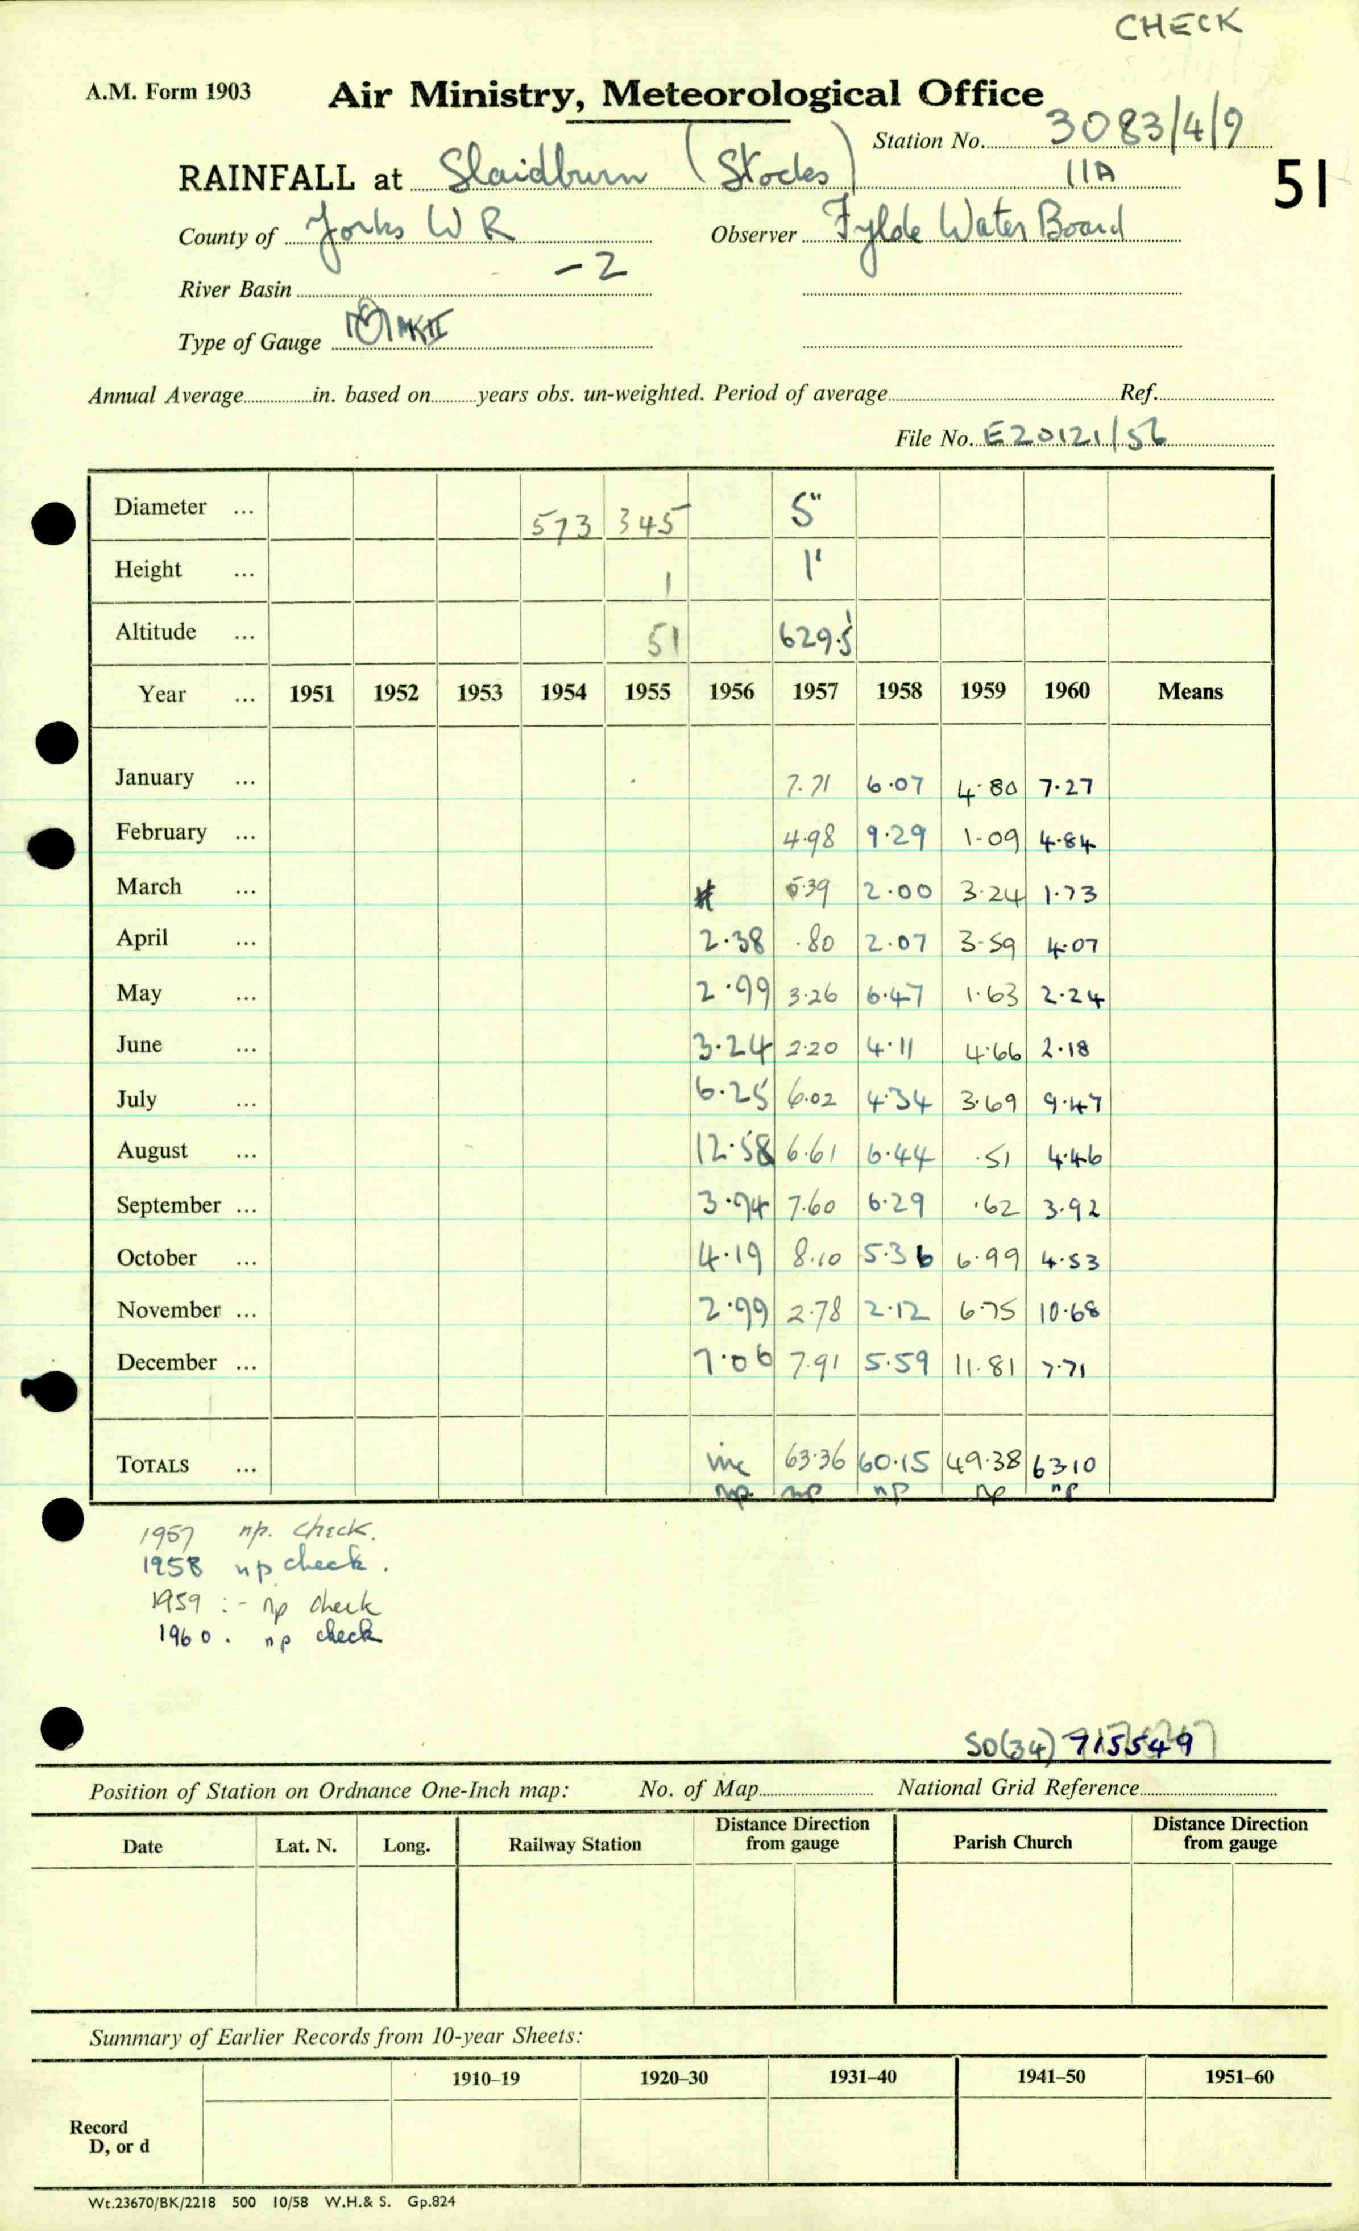 CHECK
A.M. Form 1903 Air Ministry, Meteorological Office
Station No. 3083/4/9
RAINFALL at Slaidburn (Stocks) 11A 51
County of Yorks W R Observer Fylde Water Board
River Basin -2
Type of Gauge MKII
Annual Average in. based on years obs. un-weighted. Period of average Ref.
File No. E20121/56
Diameter ... 573 345 5"
Height ... 1 1'
Altitude ... 51 629.5'
Year ... 1951 1952 1953 1954 1955 1956 1957 1958 1959 1960 Means
January ... 7.71 6.07 4.80 7.27
February ... 4.98 9.29 1.09 4.84
March ... 5.39 2.00 3.24 1.73
April ... 2.38 .80 2.07 3.59 4.07
May ... 2.99 3.26 6.47 1.63 2.24
June ... 3.24 2.20 4.11 4.66 2.18
July ... 6.25 6.02 4.34 3.69 9.47
August ... 12.58 6.61 6.44 .51 4.46
September ... 3.94 7.60 6.29 .62 3.92
October ... 4.19 8.10 5.36 6.99 4.53
November ... 2.99 2.78 2.12 6.75 10.68
December ... 7.06 7.91 5.59 11.81 7.71
TOTALS ... inc 63.36 60.15 49.38 63.10
np. np np np np
1957 np. check.
1958 np check.
1959 :- np check
1960. np check
SD(34) 715549
Position of Station on Ordnance One-Inch map: No. of Map National Grid Reference
Date Lat. N. Long. Railway Station Distance Direction from gauge Parish Church Distance Direction from gauge
Summary of Earlier Records from 10-year Sheets:
1910–19 1920–30 1931–40 1941–50 1951–60
Record
D, or d
Wt.23670/BK/2218 500 10/58 W.H.& S. Gp.824